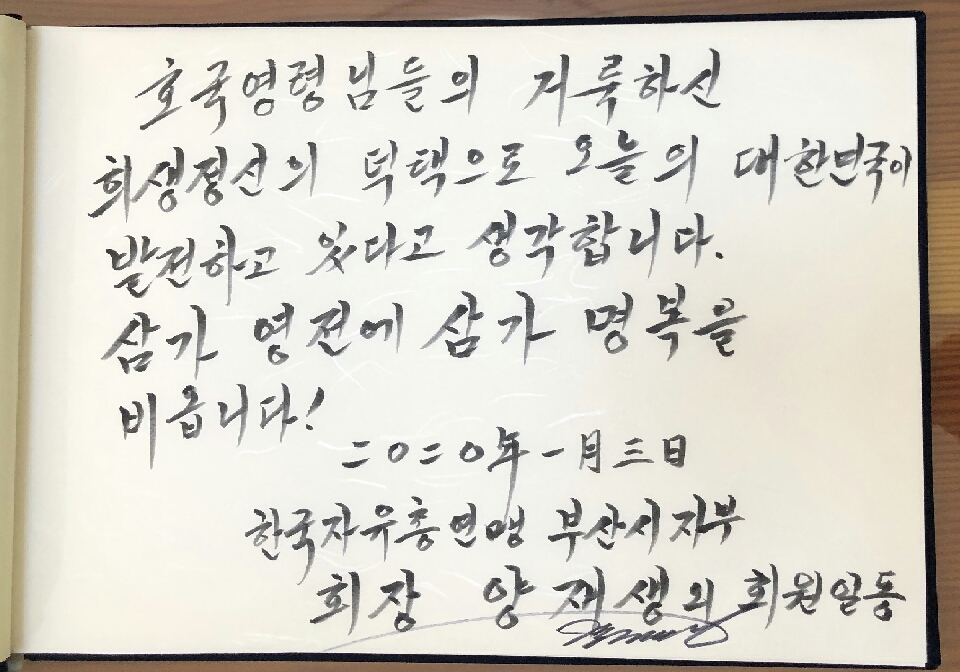 호국영령님들의 거룩하신
희생정신의 덕택으로 오늘의 대한민국이
발전하고 있다고 생각합니다.
삼가 영전에 삼가 명복을
비옵니다!
二○二○年 一月 三日
한국자유총연맹 부산시지부
회장 양재생외 회원일동